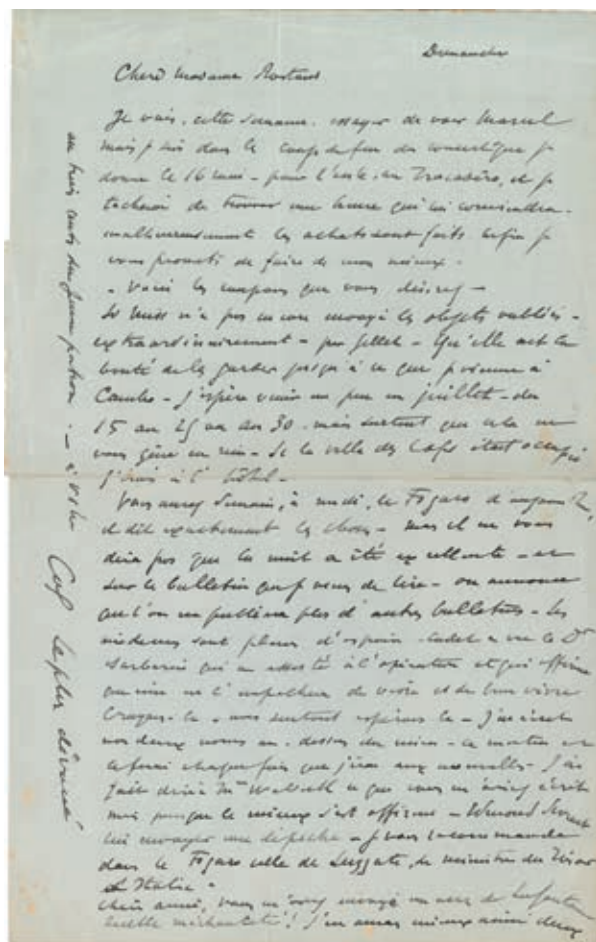 Dimanche
Chère Madame Rostand
Je vais, cette semaine, essayer de voir Marcel
mais je suis dans le coup de feu du concert que je
donne le 16 mai - pour l'asile au Trocadéro, et je
tâcherai de trouver une heure qui lui conviendra.
malheureusement les achats sont faits enfin je
vous promets de faire de mon mieux -
- Voici les coupons que vous désirez -
n'a pas encore envoyé les objets oubliés -
extraordinairement - Qu'elle ait la
bonté de les garder jusqu'à ce que je vienne à
Cambo - J'espère venir un peu en juillet - du
15 au 25 ou au 30 - mais surtout que cela ne
vous gêne en rien - Si la villa des était occupée
j'irais à l'hôtel -
Vous aurez demain, à midi, le Figaro d'aujourd'hui,
il dit exactement les choses - mais il ne vous
dira pas que la nuit a été excellente - et
sur le bulletin que je viens de lire - on annonce
que l'on ne publiera plus d'autres bulletins - Les
médecins sont pleins d'espoir - Cadet a vu le Dr
qui a assisté à l'opération et qui affirme
que rien ne l'empêchera de vivre et de bien vivre
Croyons-le - nous surtout espérons le - J'ai écrit
vos deux noms au-dessus du mien - ce matin et
le ferai chaque fois que j'irai aux nouvelles - J'ai
fait dire à Mme ce que vous m'aviez écrit
mais puisque le mieux s'est affirmé -
lui envoyer une dépêche - Je vous recommande
dans le Figaro celle de Luzzatti, le ministre du Trésor
d'Italie -
Chère amie, vous m'avez envoyé un vers de
quelle méchanceté ! J'en aurais mieux aimé deux
au trois cents du jeune patron - à votre
le plus dévoué